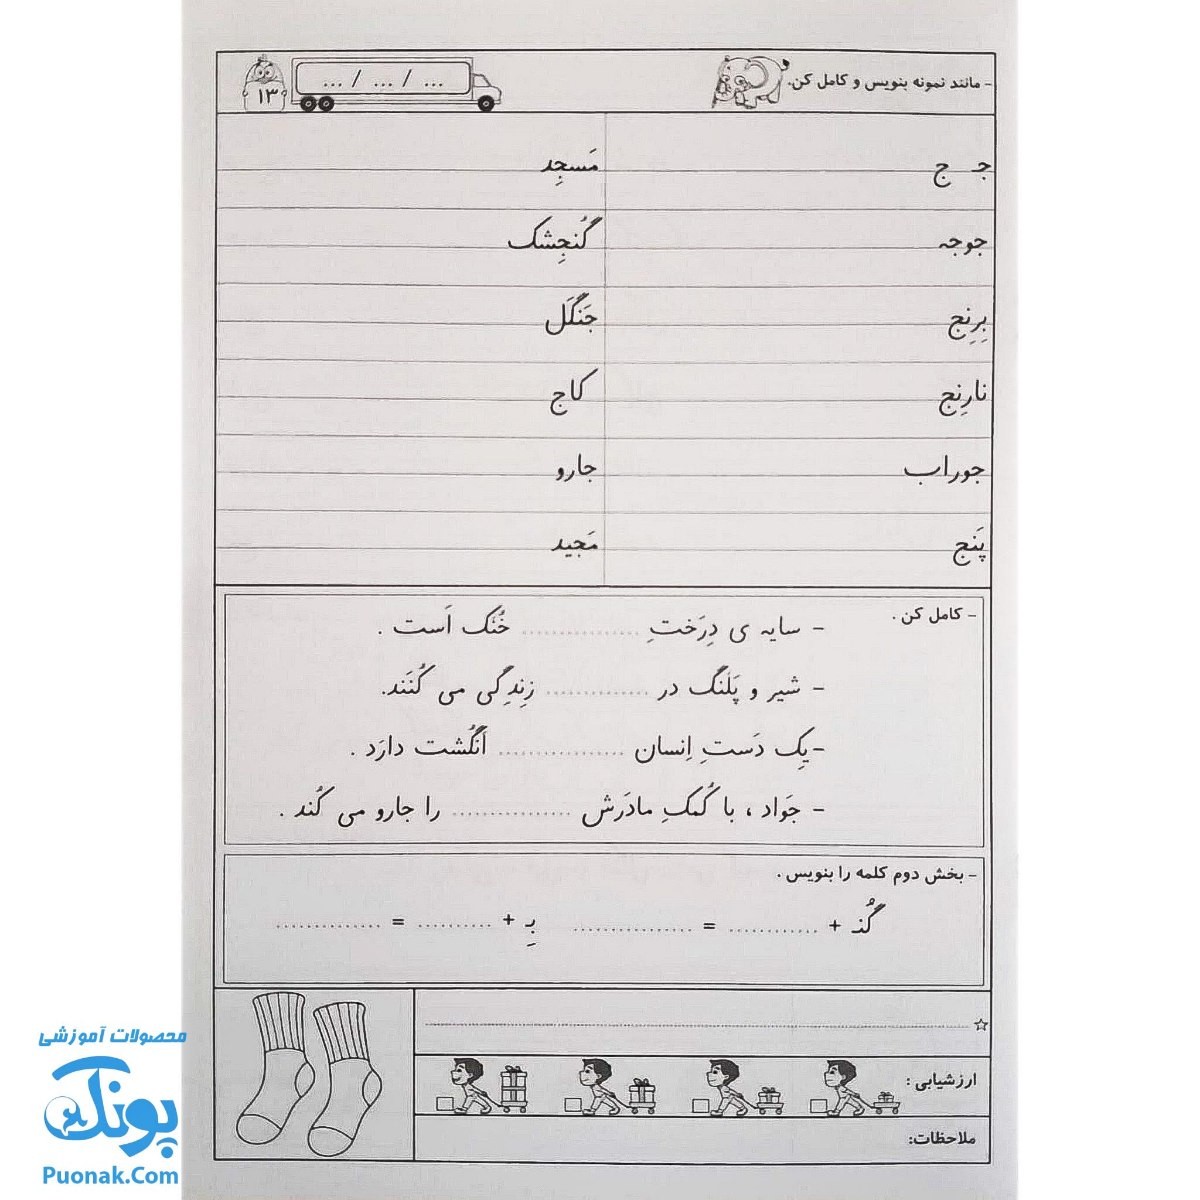 - مانند نمونه بنویس و کامل کن.
... / ... / ...
۱۳
جـ ج
مَسجِد
جوجه
گُنجِشک
بِرِنج
جَنگَل
نارِنج
کاج
جوراب
جارو
پَنج
مَجید
- کامل کن .
- سایه ی دِرَختِ ................ خُنَک اَست .
- شیر و پَلَنگ در .............. زِندِگی می کُنَند.
- یِک دَستِ اِنسان ................. اَنگُشت دارَد .
- جَواد ، با کُمَکِ مادَرَش ................ را جارو می کُند .
- بخش دوم کلمه را بنویس .
گُنـ + ............ = ................
بِـ + .......... = ..............
☆ ................
ارزشیابی :
ملاحظات:
محصولات آموزشی
پونک
Puonak.Com